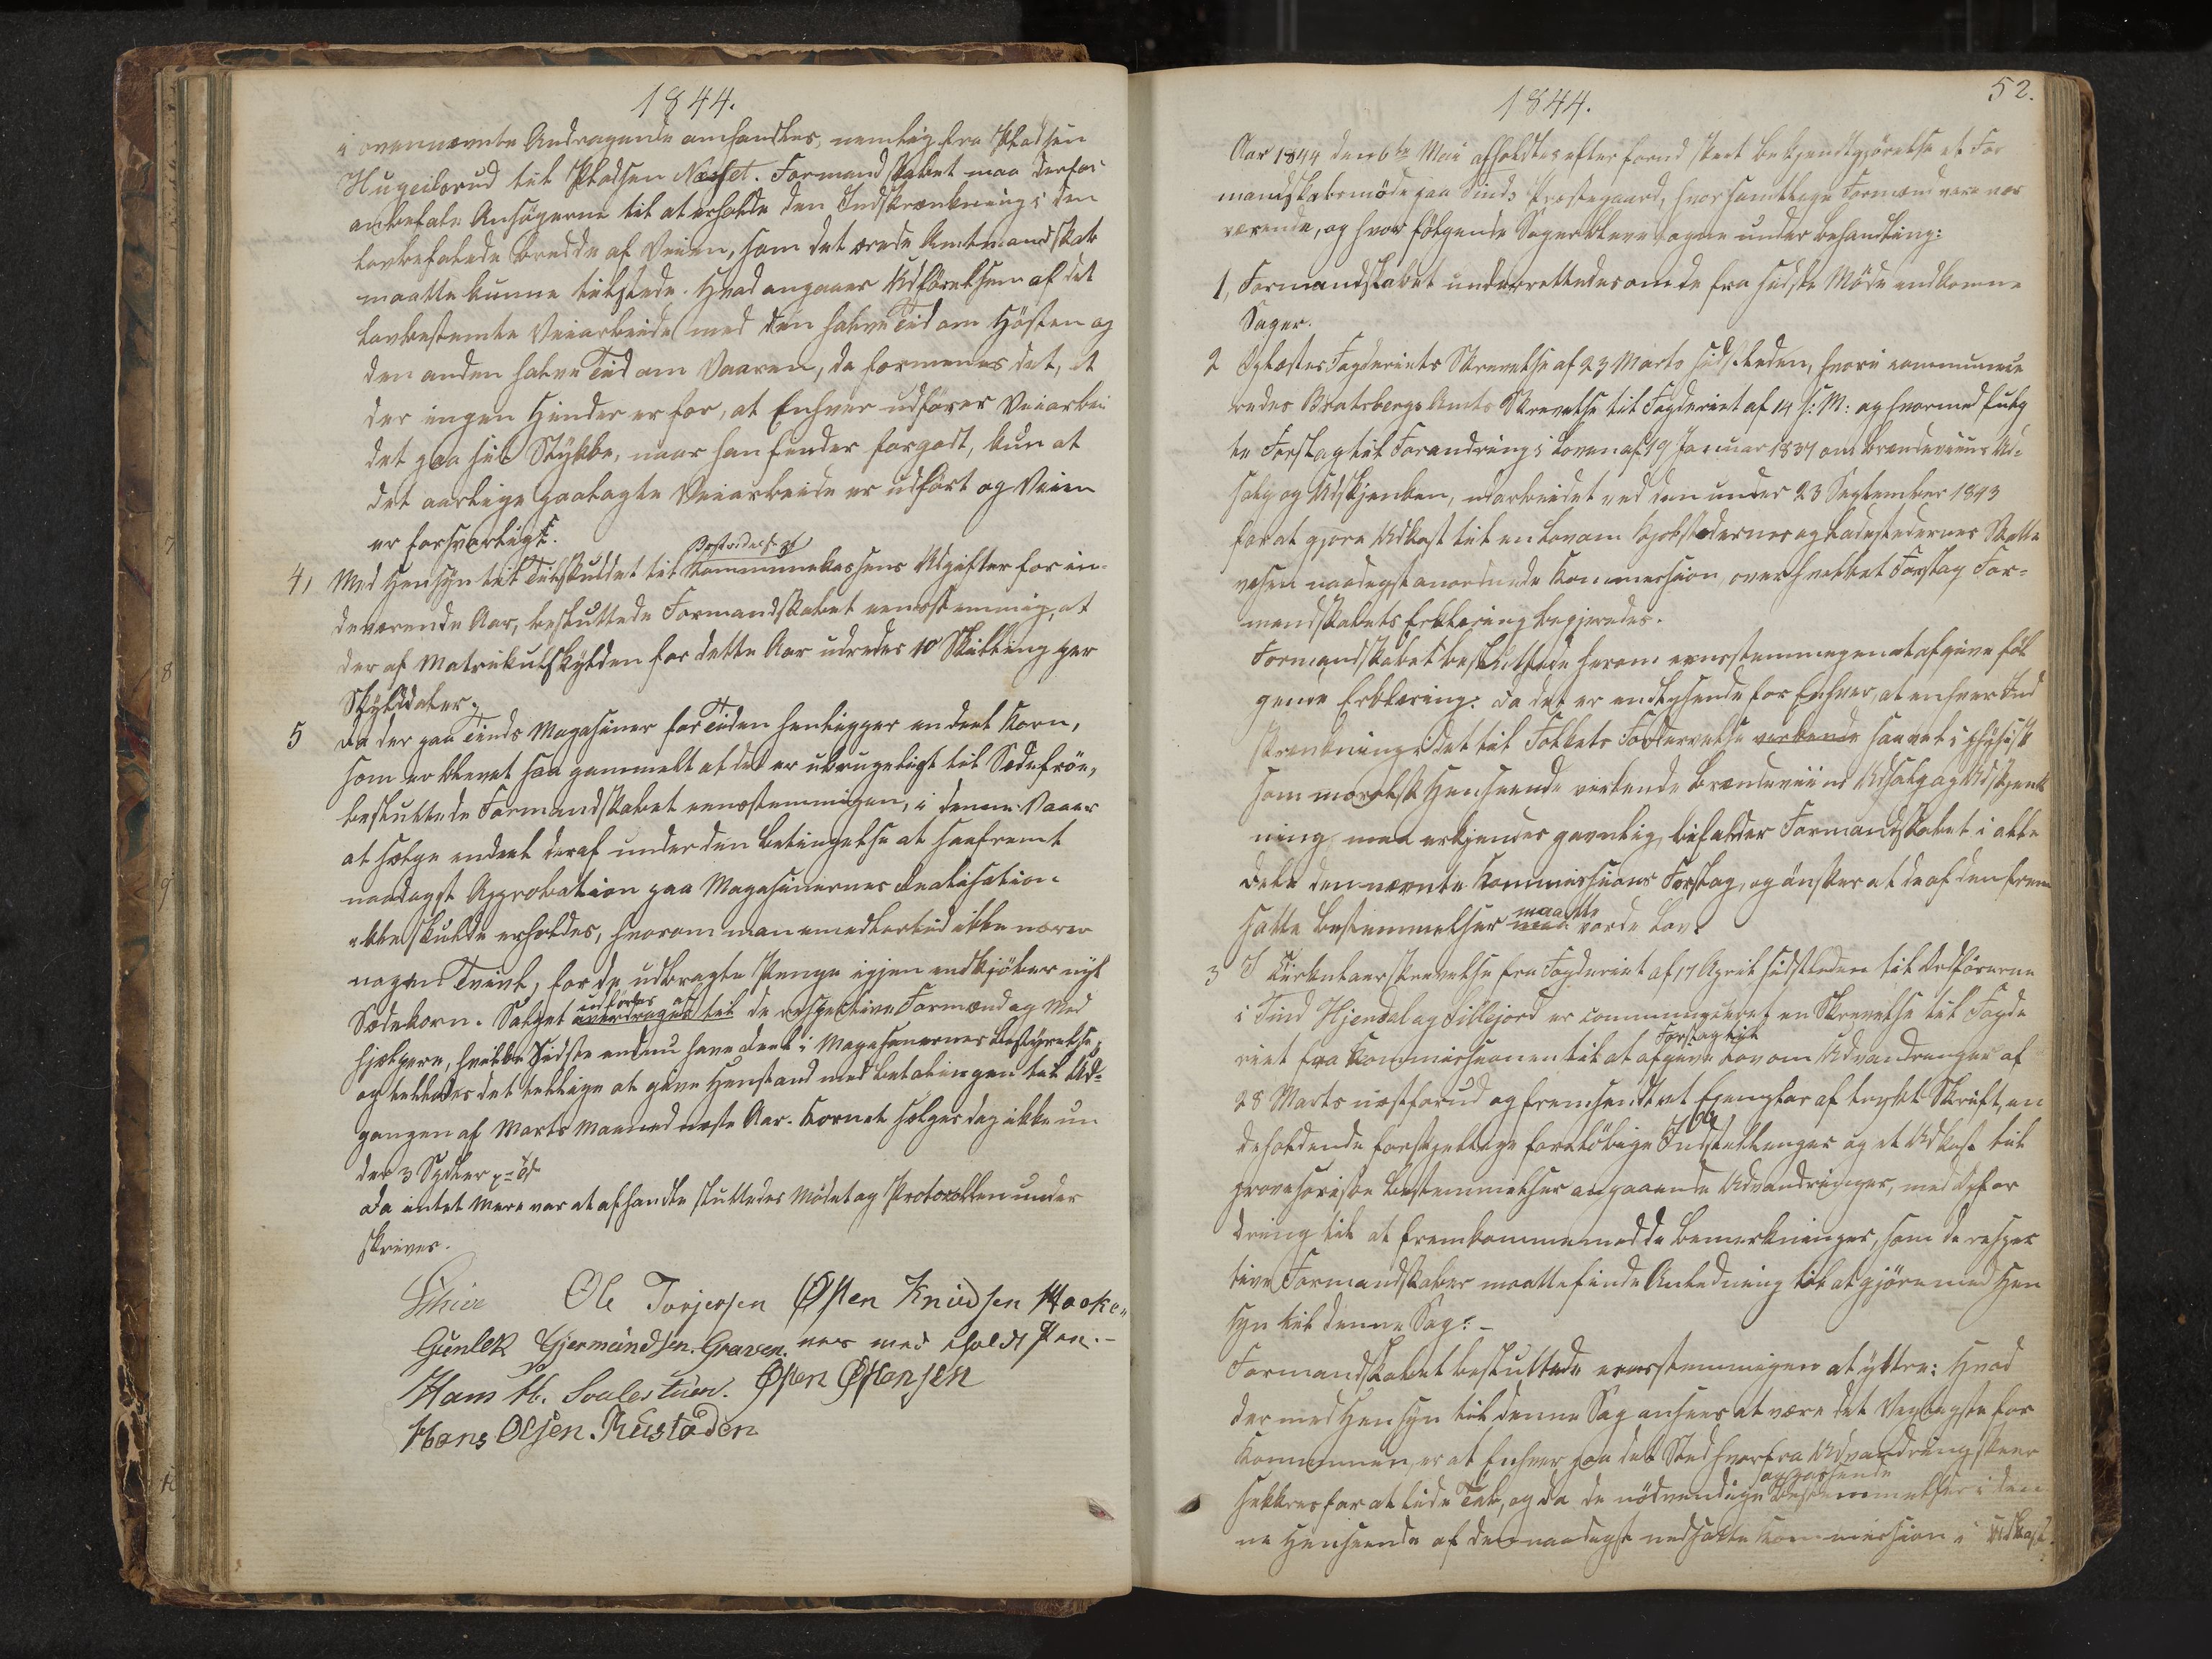 1844.
i ovennævnte Andragende omhandles, nemlig fra Pladsen
Hugeilsrud til Pladsen Næsset. Formandskabet maa derfor
anbefale Ansøgerne til at erholde den Indskrænkning i den
lovbefalede bredde af Veien, som det ærede Amtmandskab
maatte kunne tilstede. Hvad angaaer Udførelsen af det
lovbestemte Veiarbeide med den halve Tid om Høsten og
den anden halve Tid om Vaaren, da formenes det, at
der ingen Hinder er for, at Enhver udfører Veiarbei
det paa sit Stykke, naar han finder forgodt, kun at
det aarlige paalagte Veiarbeide er udført og Veien
er forsvarligt.
Bestridelse af
4, Med Hensyn til Tilskuddet til Kommunekassens Udgifter for in-
deværende Aar, besluttede Formandskabet eensstemmig, at
der af Matrikulskylden for dette Aar udredes 10 Skilling per
Skylddaler.
5 Da der paa Tinds Magasiner for Tiden henligger endeel Korn,
som er blevet saa gammelt at det er ubrugeligt til Sædefrøe,
besluttede Formandskabet eensstemmigen, i denne Vaaer
at sælge endeel deraf under den betingelse at saafremt
naadigst Approbation paa Magasinernes Realisation
ikke skulde erholdes, hvorom man imidlertid ikke nærer
nogen Tvivl, for de udbragte Penge igjen indkjøber nyt
Sædekorn. Salget overdrages til de respective Formænd og Med
udføres af
hjælpere, hvilke Sidste endnu have deel i Magasinernes Bestyrelse,
og tillades det tillige at give Henstand med betalingen til Ud-
gangen af Marts Maaned næste Aar. Kornet sælges dog ikke un
der 3 Spdlr pr Td
Da intet Mere var at afhandle sluttedes Mødet og Protocollen under
skrives.
Ole Torjersen Østen Knudsen Haake-
Gunlek Gjermundsen. Graven. næs med iholdt Pen.-
Hans H. Soulestuen. Østen Østensen
Hans Olsen. Rustaden
52.
1844.
Aar 1844 den 6te Mai afholdtes efter forud skeet bekjendtgjørelse et For
mandskabsmøde paa Tinds Præstegaard, hvor samtlige Formænd vare nær
værende, og hvor følgende Sager bleve tagne under behandling:
1, Formandskabet underrettedes om de fra sidste Møde indkomne
Sager.
2 Oplæstes Fogderiets Skrivelse af 23 Marts sidstleden, hvori communice
redes Bratsbergs Amts Skrivelse til Fogderiet af 14 s: M: og hvormed fulg
te Forslag til Forandring i Loven af 19 Januar 1837 om brændeviins Ud-
salg og Udskjenken, udarbeidet ved den under 23 September 1843
for at gjøre Udkast til en Lov om Kjøbstædernes og Ladestedernes Skatte
væsen naadigst anordnede Kommission, over hvilket Forslag For-
mandskabets Erklæring begjæredes.
Formandskabet besluttede herom eensstemmigen at afgive føl
gende Erklæring: Da det er indlysende for Enhver, at enhver Ind
skrænkning i det til Folkets Fordærvelse virkende saavel i physisk
som moralsk Henseende virkende brændeviins Udsalg og Udskjenk
ning, maa erkjendes gavnlig, bifalder Formandskabet i alle
Dele den nævnte Kommissions Forslag, og ønsker at de af den frem
maatte
satte bestemmelser maa vorde Lov.
3 I Cirkulairskrivelse fra Fogderiet af 17 April sidstleden til Ordførerne
i Tind Hjerdal og Sillejord er communiceret en Skrivelse til Fogde
Forslag til
riet fra Kommissionen til at afgive Lov om Udvandringer af
28 Marts næstforud og fremsendt et Exemplar af trykt Skrift, in
deholdende forskjellige foreløbige Indstillinger og et Udkast til
provisoriske bestemmelser angaaende Udvandringer, med Opfor
dring til at fremkomme med de bemærkninger, som de respec
tive Formandskaber maatte finde Anledning til at gjøre med Hen
syn til denne Sag: -
Formandskabet besluttede eensstemmigen at yttre: Hvad
der med Hensyn til denne Sag ansees at være det Vigtigste for
Kommunen, er at Enhver paa det Sted hvorfra Udvandring skeer
oppassende
sikkres for at lide Tab, og da de nødvendige Bestemmelser i den
ne Henseende af den naadigst nedsatte Kommission i Udkast